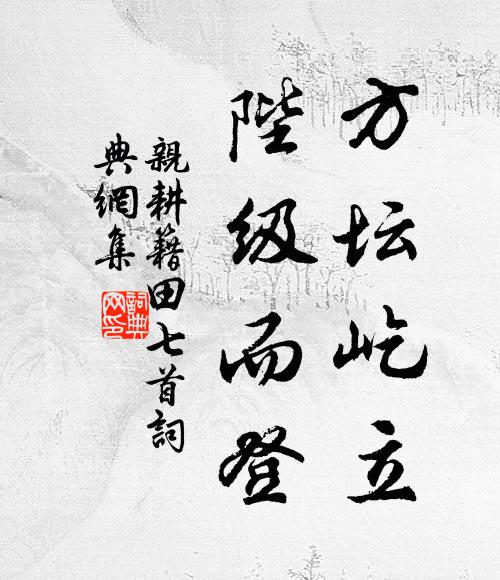 方坛屹立
陛级而登
親耕籍田七首詞
典網集
詞典
网印